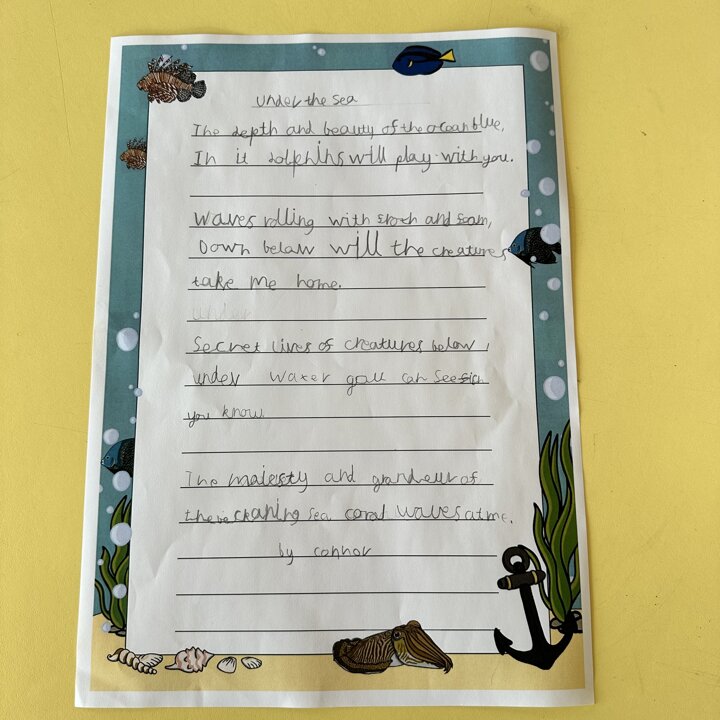 under the sea
The depth and beauty of the ocean blue,
In it dolphins will play with you.
waves rolling with froth and foam,
Down below will the creatures
take me home.
under
Secret lives of creatures below,
under water you can see
you know.
The majesty and grandeur of
the sea coral waves at me.
by connor